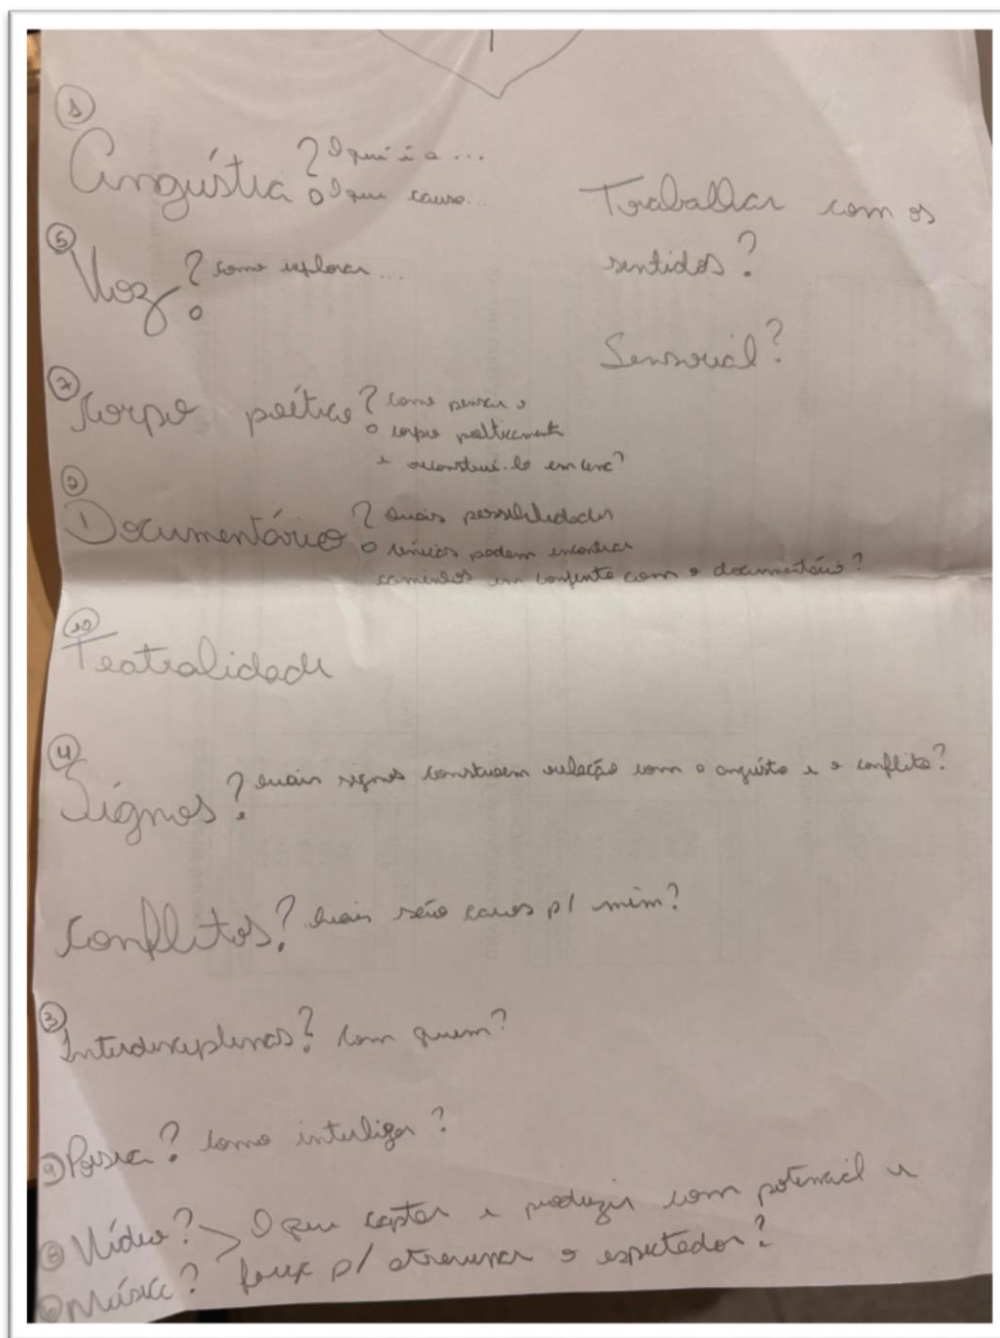 ①
Angústia? O que é a...
O que causa...
Trabalhar com os
sentidos?
Sensorial?
⑤
Voz? como explorar...
⑦
Corpo poético? Como pensar o
corpo politicamente
e reconstruí-lo em cena?
②
Documentário? Quais possibilidades
cênicas podem encontrar
caminhos em conjunto com o documentário?
⑩
Teatralidade
④
Signos? Quais signos constroem relação com a angústia e o conflito?
Conflitos? Quais são caros p/ mim?
③
Interdisciplinas? Com quem?
⑨ Poesia? Como interligar?
⑧ Vídeo? > O que captar e produzir com potencial e
⑥ Música? p/ atravessar o espectador?